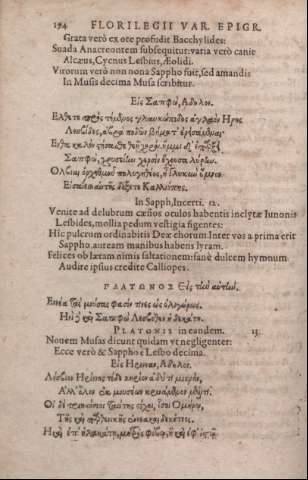 194 FLORILEGII VAR. EPIGR.
Grata verò ex ore profudit Bacchylides:
Suada Anacreontem subsequitur: varia verò canit
Alcæus, Cycnus Lesbius, Æolidi.
Virorum verò non nona Sappho fuit, sed amandis
In Musis decima Musa scribitur.
Εἰς Σαπφώ, Ἄδηλον.
Ἔλθετε πρὸς τέμενος γλαυκώπιδος ἀγλαὸν Ἥρης
Λεσβίδες, ἁβρὰ ποδῶν βήμαθ' ἑλισσόμεναι·
Ἔνθα καλὸν στήσασθε θεῇ χορόν· ὔμμι δ' ἀπάρξει
Σαπφώ, χρυσείην χερσὶν ἔχουσα λύρην.
Ὄλβιαι ὀρχηθμοῦ πολυγηθέος, ἦ γλυκὺν ὕμνον
Εἰσαΐειν αὐτῆς δόξετε Καλλιόπης.
In Sapph, Incerti. 12.
Venite ad delubrum cæsios oculos habentis inclytæ Iunonis
Lesbides, mollia pedum vestigia figentes:
Hic pulcrum ordinabitis Deæ chorum. Inter vos a prima erit
Sappho. auream manibus habens lyram.
Felices ob lætam nimis saltationem: sanè dulcem hymnum
Audire ipsius credite Calliopes.
ΠΛΑΤΩΝΟΣ Εἰς τὴν αὐτήν.
Ἐννέα τὰς μούσας φασίν τινες· ὡς ὀλιγώρως.
Ἠνὶ δὲ καὶ Σαπφὼ Λεσβόθεν ἡ δεκάτη.
PLATONIS in eandem. 13.
Nouem Musas dicunt quidam vt negligenter:
Ecce verò & Sappho è Lesbo decima.
Εἰς Ἤρινναν, Ἄδηλον.
Λέσβιον Ἠρίννης τόδε κηρίον· ἁδύ τι μικρόν,
Ἀλλ' ὅλον ἐκ μουσέων κιρνάμενον μέλιτι.
Οἱ δὲ τριηκόσιοι ταύτης στίχοι, ἶσοι Ὁμήρῳ,
Τῆς καὶ παρθενικῆς ἐννεακαιδεκέτευς.
Ἣ καὶ ἐπ' ἠλακάτῃ, μητρὸς φόβῳ, ἣ καὶ ἐφ' ἱστῷ